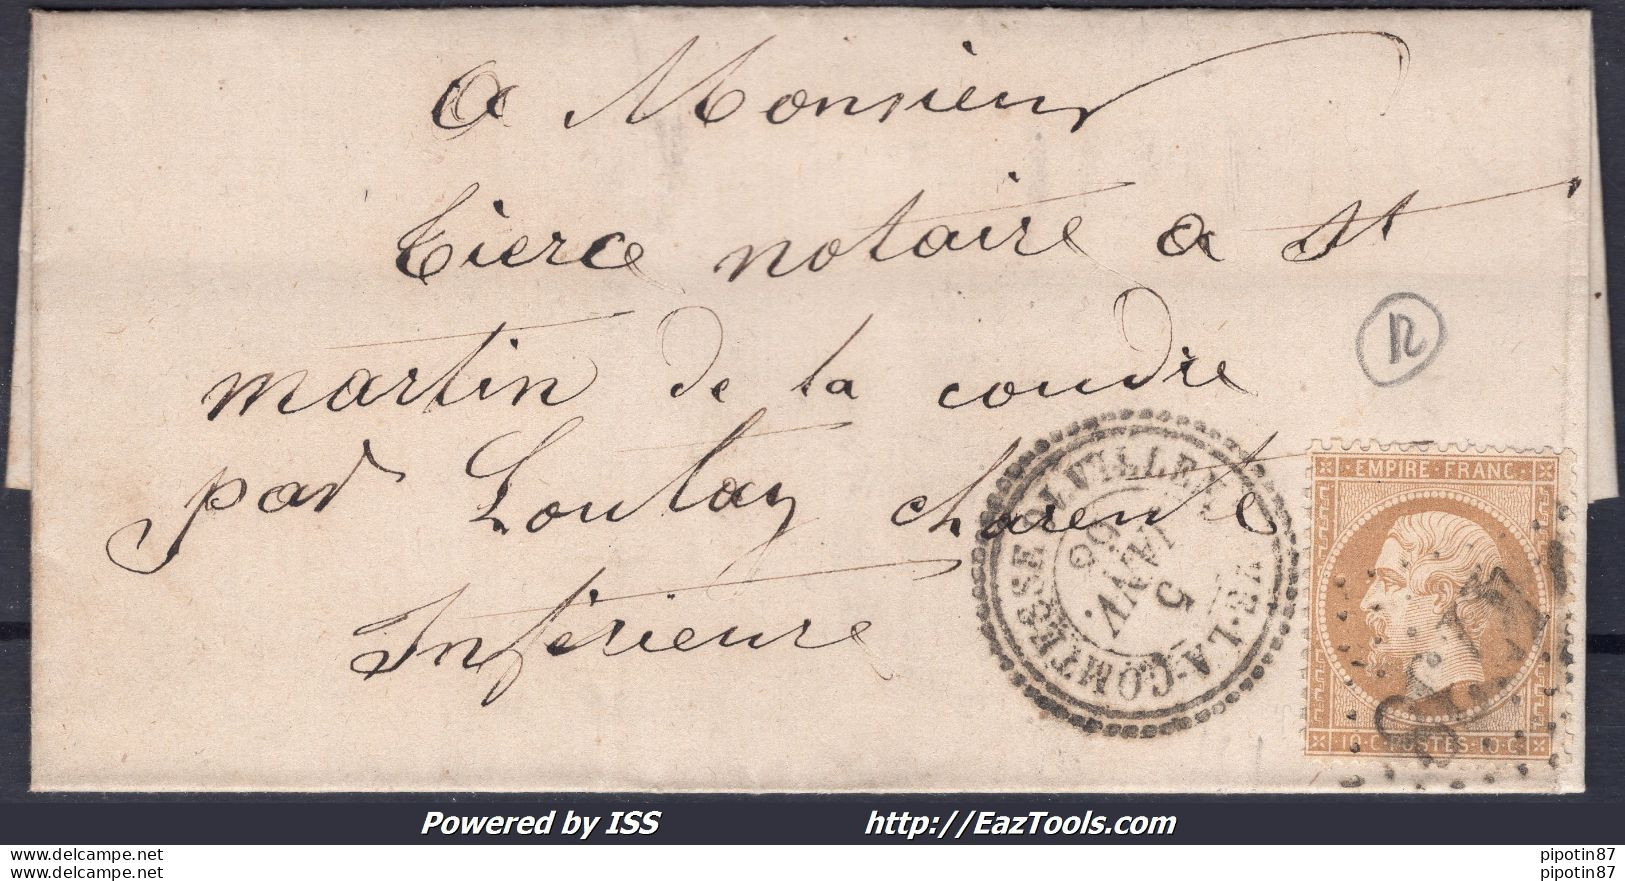 a Monsieur
Tierce notaire a St
martin de la coudre
par Loulay charente
Inférieure
R
LA-COMTESSE
5
JANV.
66
EMPIRE·FRANC·
10·C·POSTES·10·C·
Powered by ISS http://EazTools.com
pipotin87 pipotin87
pipotin87 pipotin87